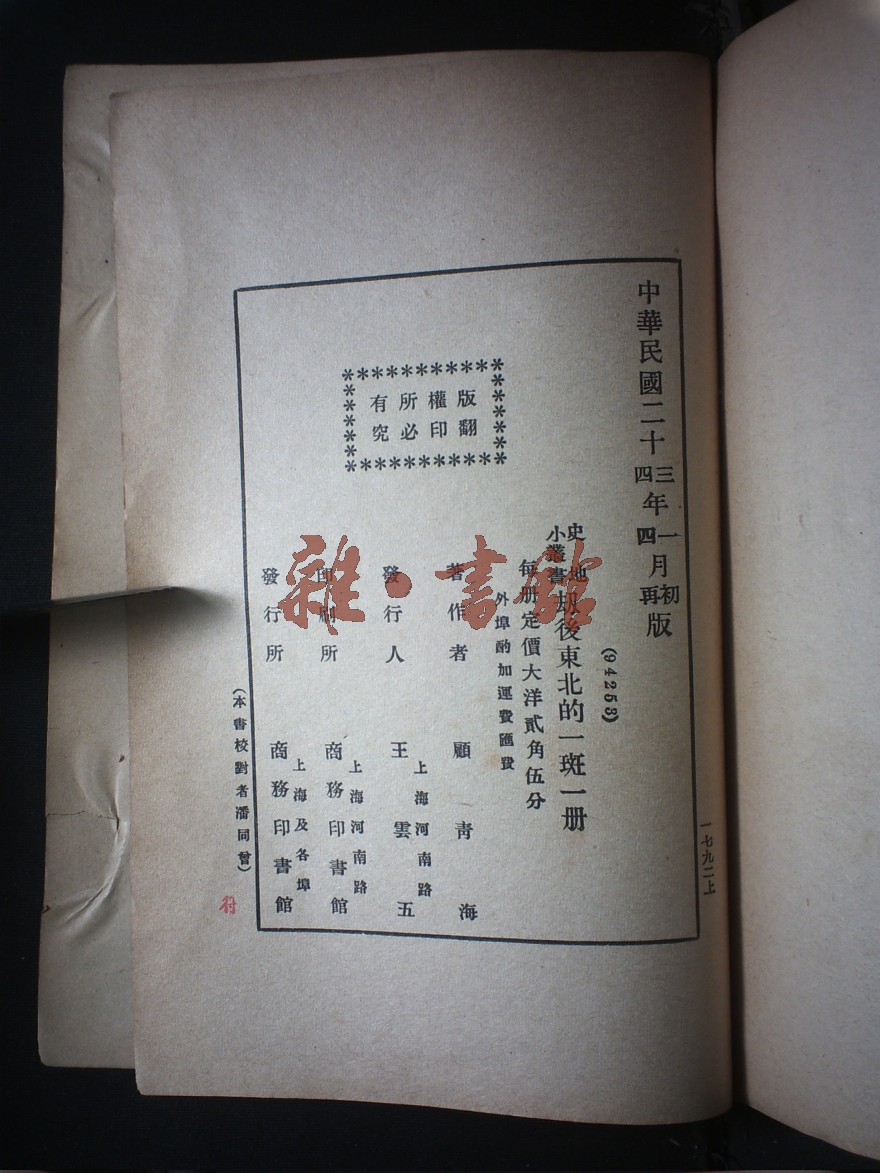 中華民國二十三年一月初版
四四再
(94253)
史地小叢書 劫後東北的一斑一册
每册定價大洋貳角伍分
外埠酌加運費匯費
著作者 顧青海
發行人 王雲五
上海河南路
印刷所 商務印書館
上海河南路
發行所 商務印書館
上海及各埠
版權所有
翻印必究
(本書校對者潘同曾)
一七九二上
雜·書館